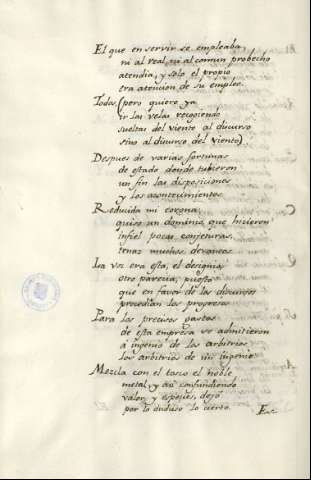 El que en servir se empleaba,
ni al real, ni al comun probecho
atendia, y solo el propio
era atencion de su empleo.
Todas (pero quiero ya
ir las velas recogiendo
sueltas del viento al discurso
sino al discurso del viento)
Despues de varias fortunas
de estado donde tubieron
un fin las disposiciones
y los acontecimientos
Reducida mi corona,
quiso un dominio, que hicieron
infiel pocas conjeturas,
tenaz muchos devaneos.
La voz era esta, el designio
otro parecia, puesto
que en favor de los
procedian los progresos.
Para los precisos gastos
de esta empresa se admitieron
a ingenio de los arbitrios,
los arbitrios de mi ingenio
Mezcla con el tosco el noble
metal, y asi confundiendo
valor, y especies, dejó
por lo dudoso lo cierto.